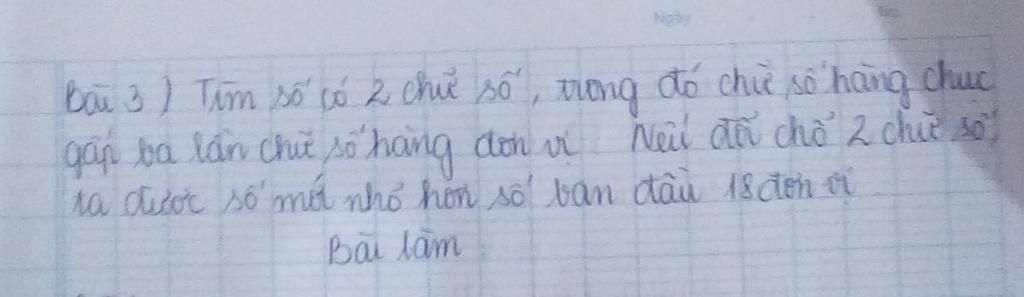 Ngày
Bài 3) Tìm số có 2 chữ số, trong đó chữ số hàng chục
gấp ba lần chữ số hàng đơn vị. Nếu đổi chỗ 2 chữ số
ta được số mới nhỏ hơn số ban đầu 18 đơn vị
Bài làm